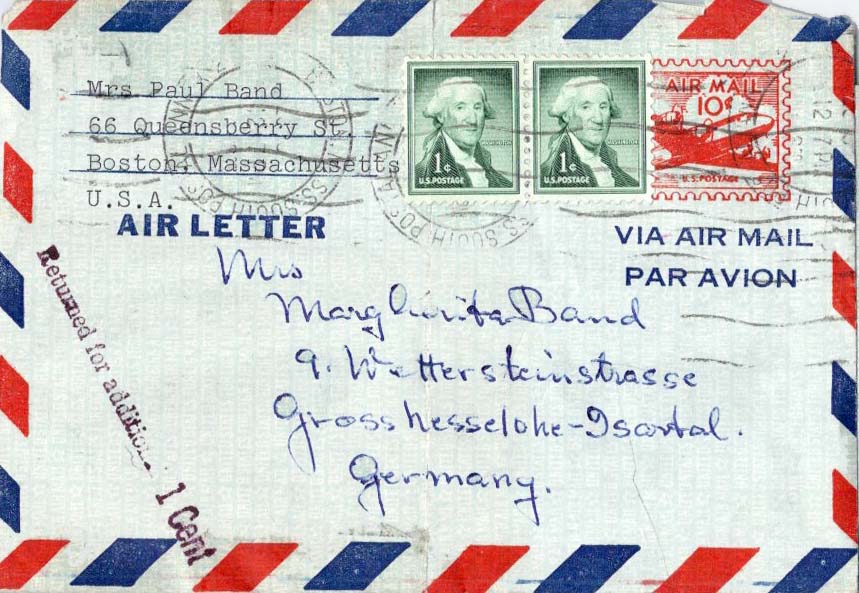 Mrs Paul Band
66 Queensberry St.
Boston, Massachusetts
U.S.A.
1¢ WASHINGTON
U.S. POSTAGE
1¢ WASHINGTON
U.S. POSTAGE
AIR MAIL
10¢
U.S. POSTAGE
AIR LETTER
VIA AIR MAIL
PAR AVION
Mrs
Margherita Band
9. Wettersteinstrasse
Grosshesselohe-Isartal.
Germany.
Returned for additional 1 Cent